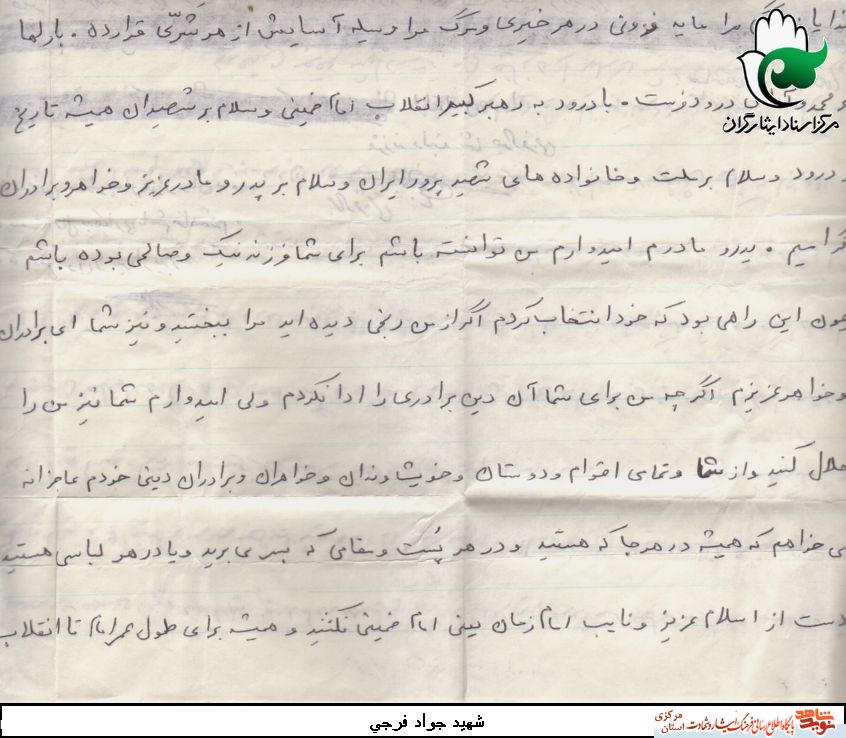 مرا مایه فزونی در هر خیری و مرگ مرا وسیله آسایش از هر شرّی قرار ده . بارلها
درود فرست . با درود به رهبر کبیر انقلاب امام خمینی و سلام بر شهیدان همیشه تاریخ
و درود و سلام بر ملت و خانواده های شهید پرور ایران و سلام بر پدر و مادر عزیز و خواهر و برادران
گرامیم . پدر و مادرم امیدوارم من توانسته باشم برای شما فرزند نیک و صالحی بوده باشم
چون این راهی بود که خود انتخاب کردم اگر از من رنجی دیده اید مرا ببخشید و نیز شما ای برادران
و خواهر عزیزم اگر چه من برای شما آن دین برادری را ادا نکردم ولی امیدوارم شما نیز من را
حلال کنید و از شما و تمامی اقوام و دوستان و خویشاوندان و خواهران و برادران دینی خودم عاجزانه
می خواهم که همیشه در هر جا که هستید و در هر پُست و مقامی که بسر می برید و یا در هر لباسی هستید
دست از اسلام عزیز و نایب امام زمان یعنی امام خمینی نکشید و همیشه برای طول عمر امام تا انقلاب
مرکز اسناد ایثارگران
شهید جواد فرجي
نوید شاهد
پایگاه اطلاع رسانی فرهنگ ایثار و شهادت
استان مرکزی